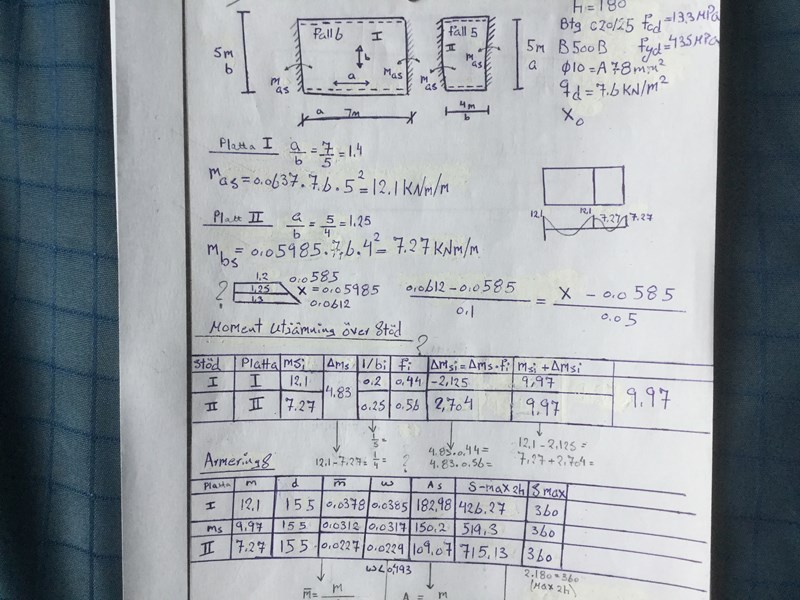 h=180
Btg C20/25 fcd=13,3MPa
B500B fyd=435MPa
ϕ10=A78mm²
qd=7.6KN/m²
X₀
5m b
Fall 6 I
b
a
mas
mas
a 7m
Fall 5
II
mas
mas
4m
b
5m a
Platta I a/b = 7/5 = 1.4
mas=0.0637·7.6·5²=12.1KNm/m
Platt II a/b = 5/4 = 1.25
mbs= 0.05985·7.6·4²= 7.27KNm/m
12,1 12,1 7.27 7.27
? 1,2 0.0585
1,25 X=0.05985
1,3 0.0612
0.0612-0.0585 / 0.1 = X-0.0585 / 0.05
Moment Utjämning över Stöd ?
Stöd Platta msi Δms 1/bi fi Δmsi=Δms·fi msi+Δmsi
I I 12,1 4.83 0.2 0.44 -2,125 9,97 9,97
II II 7.27 0.25 0.56 2,704 9,97
12,1-7.27= 1/5= 1/4= ? 4.83·0.44= 4.83·0.56= 12.1-2.125= 7.27+2.704=
Armering8
Platta m d m̄ ω As S-max2h Smax
I 12,1 155 0,0378 0,0385 182,98 426.27 360
ms 9,97 155 0,0312 0,0317 150,2 519,3 360
II 7.27 155 0,0227 0,0229 109,07 715,13 360
ω<0,493
2.180=360
(max 2h)
m̄= m
A = m